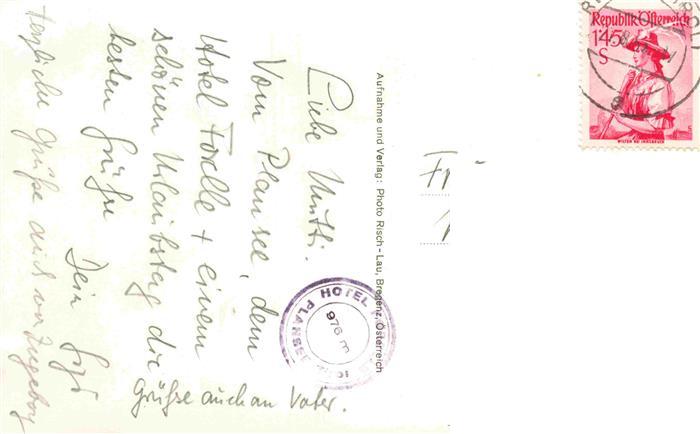 Liebe Mutti.
Vom Plansee, dem
Hotel Forelle + einem
schönen Urlaubstag die
besten Grüße
Dein
Grüße auch an Vater.
Herzliche Grüße auch von Ingeborg
Aufnahme und Verlag: Photo Risch-Lau, Bregenz, Österreich
HOTEL
PLANSEE
976 m
Republik Österreich
1'45
S